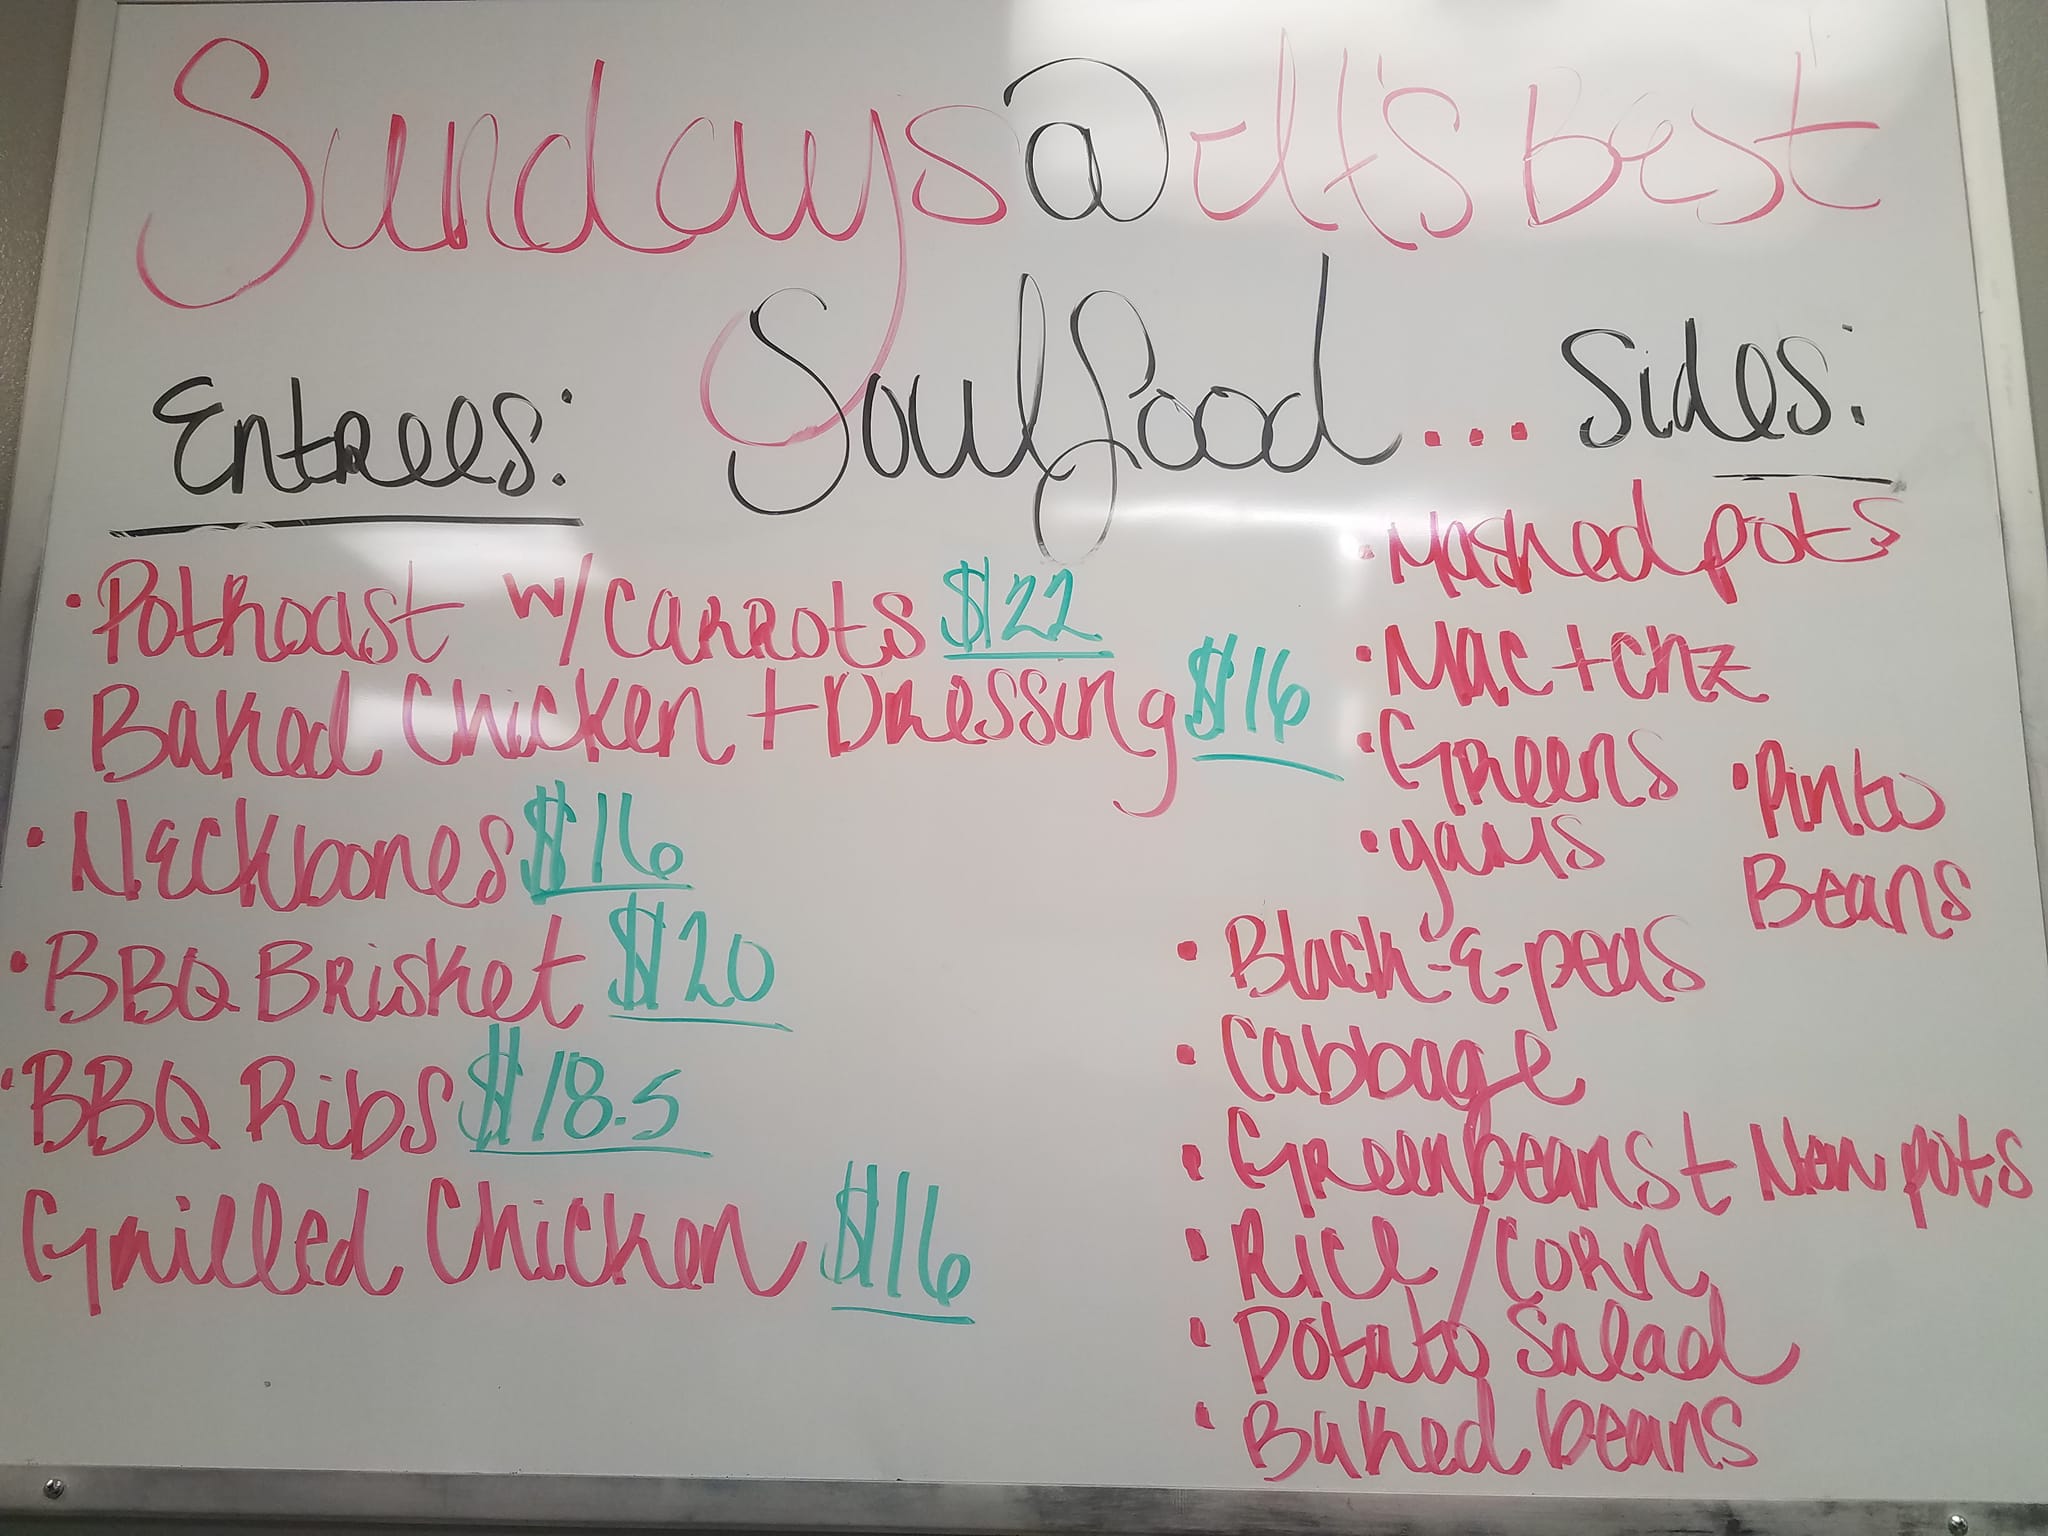 Sundays @ It's Best
Soulfood...
Entrees:
• Potroast w/ Carrots $22
• Baked Chicken + Dressing $16
• Neckbones $16
• BBQ Brisket $20
• BBQ Ribs $18.5
Grilled Chicken $16
Sides:
• Mashed pots
• Mac + chz
• Greens
• yams
• Pinto
Beans
• Black-e-peas
• Cabbage
• Greenbeans + New pots
• Rice/Corn
• Potato Salad
• Baked beans